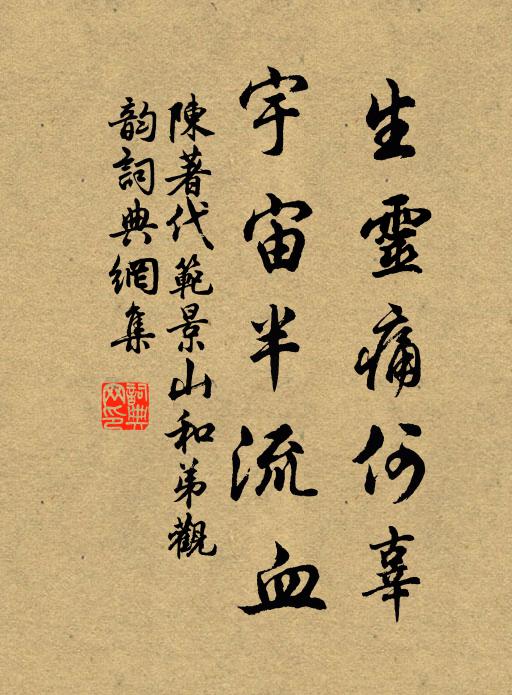 生靈痛何辜
宇宙半流血
陳著代範景山和弟觀
韵詞典網集
詞典網印